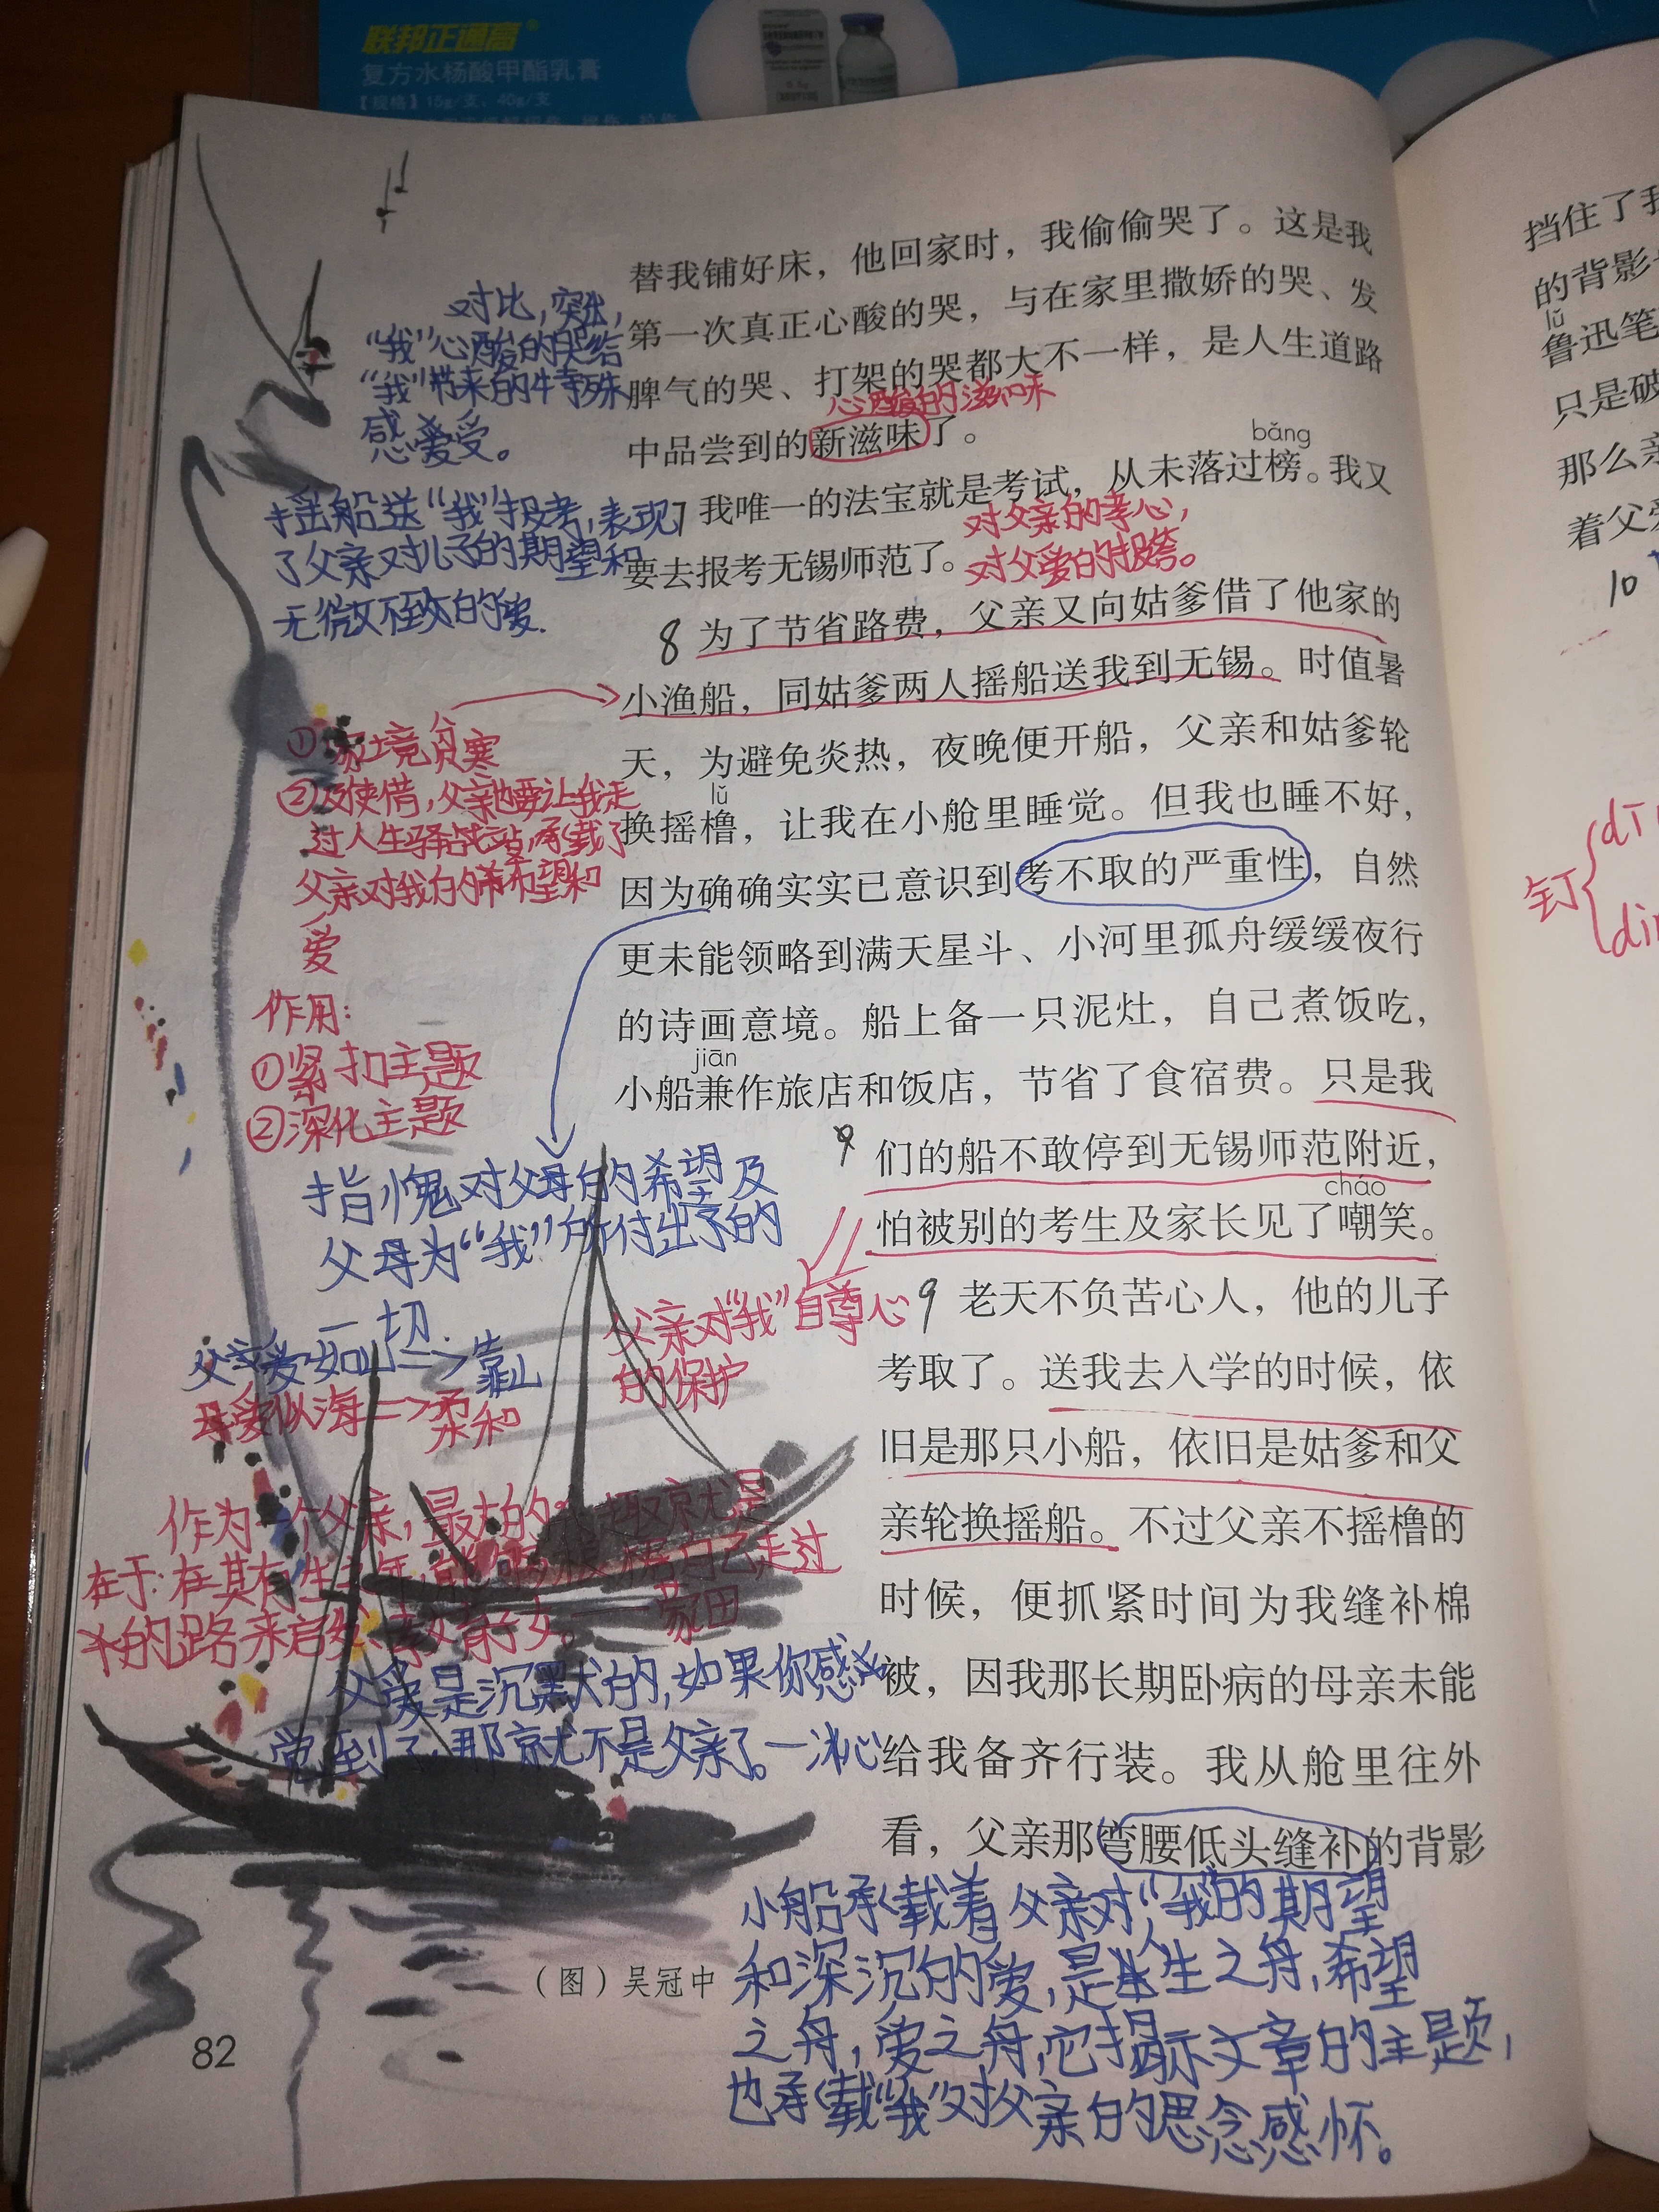 联邦正通高®
复方水杨酸甲酯乳膏
【规格】15g/支、40g/支
替我铺好床，他回家时，我偷偷哭了。这是我
第一次真正心酸的哭，与在家里撒娇的哭、发
脾气的哭、打架的哭都大不一样，是人生道路
心酸的滋味
中品尝到的新滋味了。
bǎng
7 我唯一的法宝就是考试，从未落过榜。我又
要去报考无锡师范了。
对父亲的孝心，
对父爱的报答。
8 为了节省路费，父亲又向姑爹借了他家的
小渔船，同姑爹两人摇船送我到无锡。时值暑
天，为避免炎热，夜晚便开船，父亲和姑爹轮
lǔ
换摇橹，让我在小舱里睡觉。但我也睡不好，
因为确确实实已意识到考不取的严重性，自然
更未能领略到满天星斗、小河里孤舟缓缓夜行
的诗画意境。船上备一只泥灶，自己煮饭吃，
jiān
小船兼作旅店和饭店，节省了食宿费。只是我
们的船不敢停到无锡师范附近，
cháo
怕被别的考生及家长见了嘲笑。
9 老天不负苦心人，他的儿子
考取了。送我去入学的时候，依
旧是那只小船，依旧是姑爹和父
亲轮换摇船。不过父亲不摇橹的
时候，便抓紧时间为我缝补棉
被，因我那长期卧病的母亲未能
给我备齐行装。我从舱里往外
看，父亲那弯腰低头缝补的背影
对比，突出，
“我”心酸的哭给
“我”带来的特殊
感受。
摇船送“我”报考，表现
了父亲对儿子的期望和
无微不至的爱.
①家境贫寒
②及使借，父亲也要让我走
过人生驿站，承载了
父亲对我的希望和
爱
作用：
①紧扣主题
②深化主题
指愧对父母的希望及
父母为“我”所付出的
一切.
父爱如山=>靠山
母爱似海=>柔和
父亲对“我”自尊心
的保护
作为一个父亲，最大的乐趣就是
在于：在其有生之年，能够根据自己走过
的路来启发、教育子女。——蒙田
父爱是沉默的，如果你感
觉到了，那就不是父亲了。—冰心
小船承载着父亲对“我”的期望
和深沉的爱，是人生之舟，希望
之舟，爱之舟，它揭示文章的主题，
也承载“我”对父亲的思念感怀。
（图）吴冠中
82
挡住了我
的背影
lǔ
鲁迅笔
只是破
那么亲
着父爱
10
钉